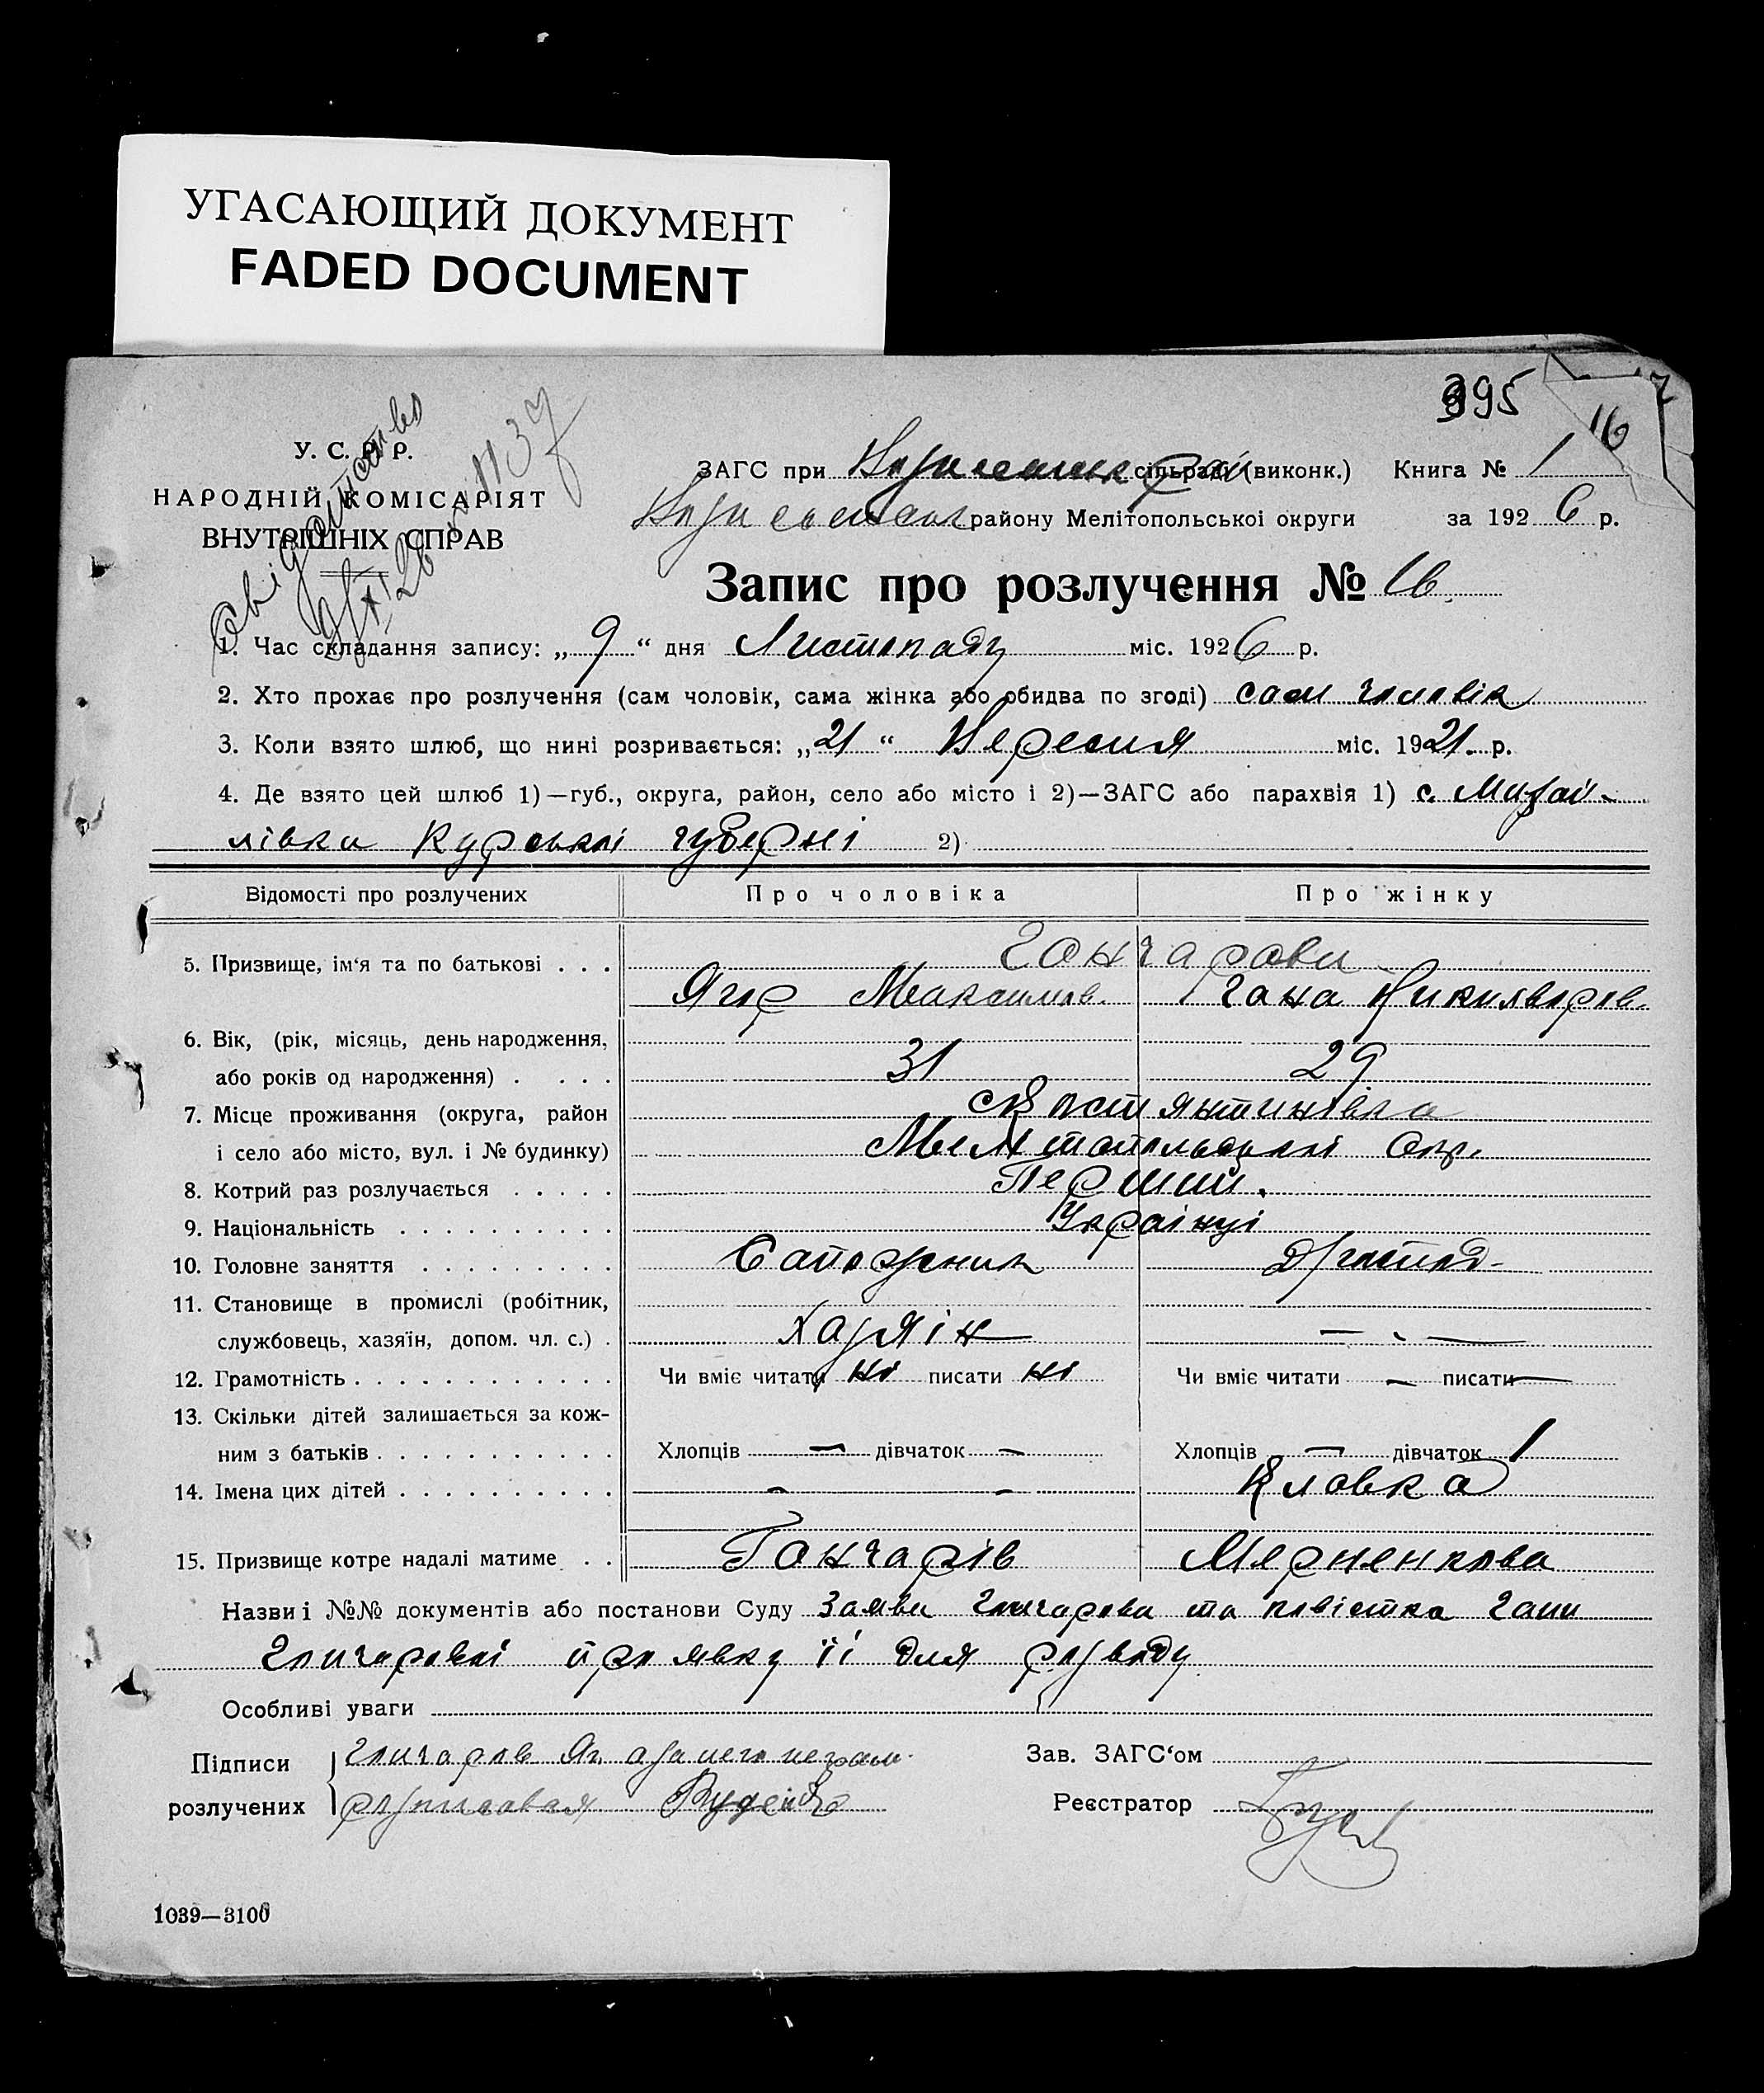 УГАСАЮЩИЙ ДОКУМЕНТ
FADED DOCUMENT
395
16
У. С. Р. Р.
НАРОДНІЙ КОМІСАРІЯТ
ВНУТРІШНІХ СПРАВ
Свідоцтво
1137
9/XI 26
ЗАГС при сільраді (виконк.) Книга № 1
району Мелітопольської округи за 1926 р.
Запис про розлучення № 16.
1. Час складання запису: „9“ дня Листопаду міс. 1926 р.
2. Хто прохає про розлучення (сам чоловік, сама жінка або обидва по згоді) сам чоловік
3. Коли взято шлюб, що нині розривається: „21“ Вересня міс. 1921. р.
4. Де взято цей шлюб 1)—губ., округа, район, село або місто і 2)—ЗАГС або парахвія 1) с. Михай-
лівка Курської губерні 2)
Відомості про розлучених Про чоловіка Про жінку
5. Призвище, ім‘я та по батькові . . . Гончарови
Ягор Максимов. Гана Никифоров.
6. Вік, (рік, місяць, день народження,
або років од народження) . . . . 31 29
7. Місце проживання (округа, район
і село або місто, вул. і № будинку) Мелітопольської Окр.
8. Котрий раз розлучається . . . . . Перший.
9. Національність . . . . . . . . . . Українці
10. Головне заняття . . . . . . . . . Сапожник Д/господ-
11. Становище в промислі (робітник,
службовець, хазяїн, допом. чл. с.) . Хазяін — „ —
12. Грамотність . . . . . . . . . . . . Чи вміє читати ні писати ні Чи вміє читати — писати —
13. Скільки дітей залишається за кож-
ним з батьків . . . . . . . . . . . Хлопців — дівчаток — Хлопців — дівчаток 1
14. Імена цих дітей . . . . . . . . . . - -
15. Призвище котре надалі матиме . . Гончарів
Назви і №№ документів або постанови Суду Заява Гончарова та повістка Гани
Гончарової про явку її для розводу
Особливі уваги
Підписи
розлучених
Гончаров Яг. а за него неграм.
Зав. ЗАГС‘ом
Реєстратор
1039—3100